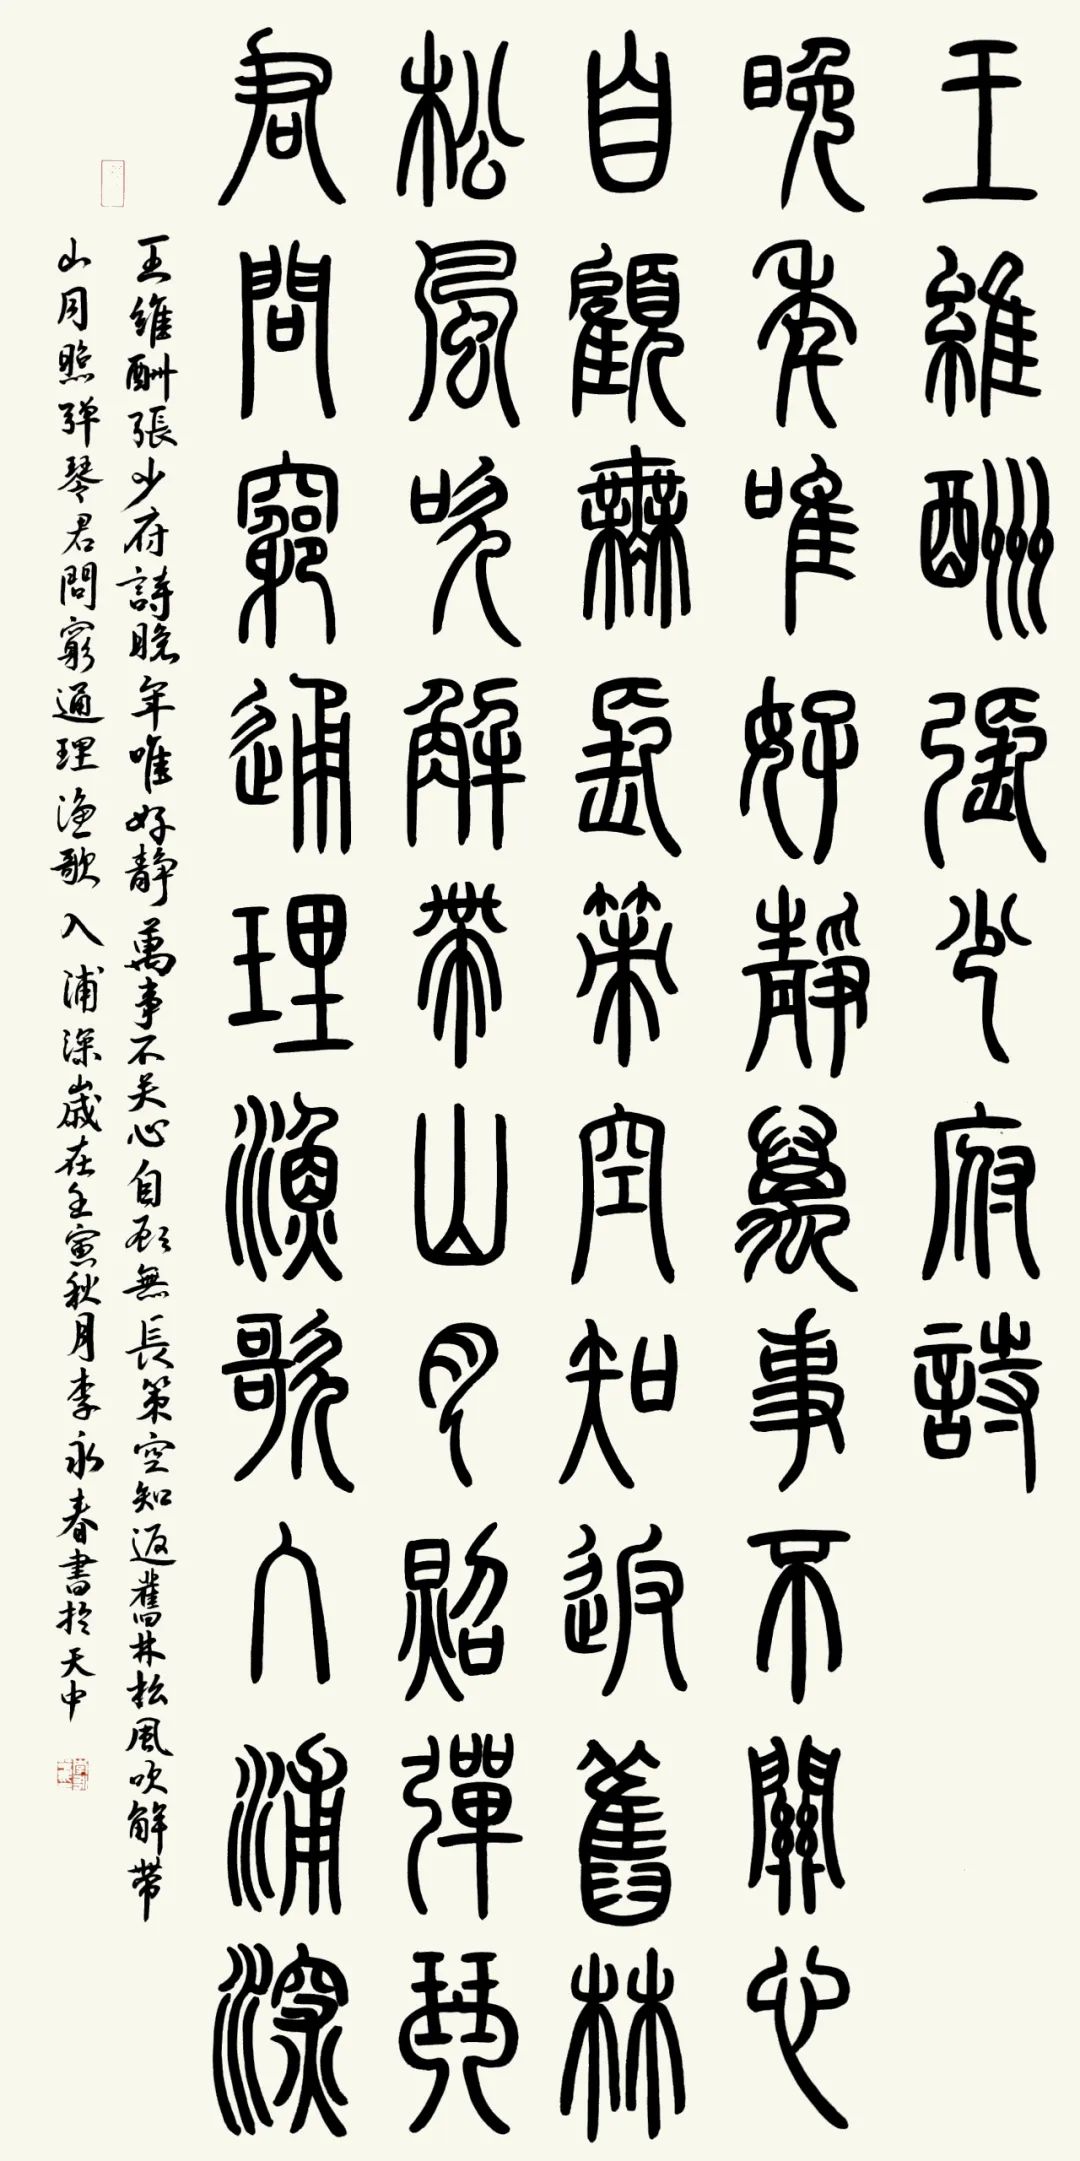 王維酬張少府詩
晚年唯好靜萬事不關心
自顧無長策空知返舊林
松風吹解帶山月照彈琴
君問窮通理漁歌入浦深
王維酬張少府詩晚年唯好静萬事不关心自顾無長策空知返舊林松風吹解帶
山月照弹琴君問窮通理渔歌入浦深歲在壬寅秋月李永春書於天中